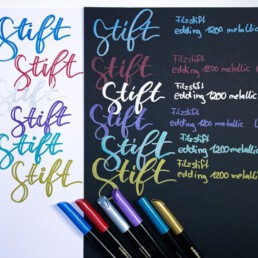 Stift
Filzstift
edding 1200 metallic
Stift
Filzstift
edding 1200 metallic
Stift
Filzstift
edding 1200 metallic
Stift
Filzstift
edding 1200 metallic
Stift
Filzstift
edding 1200 metallic
Stift
Filzstift
edding 1200 metallic